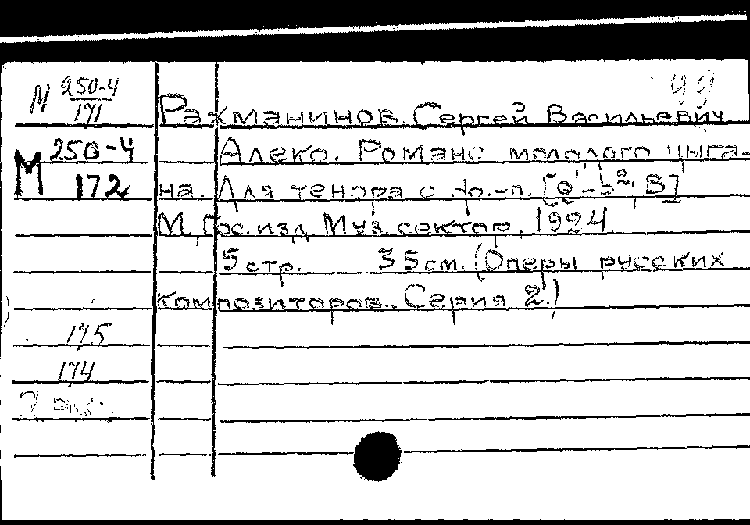 М 250-4
171
Рахманинов. Сергей Васильевич
М 250-4
172
Алеко. Романс молодого цыга-
на. Для тенора с ф.-п.
М., Гос. изд. Муз. сектор, 1924
5 стр. 35 см. (Оперы русских
композиторов. Серия 2.)
175
174